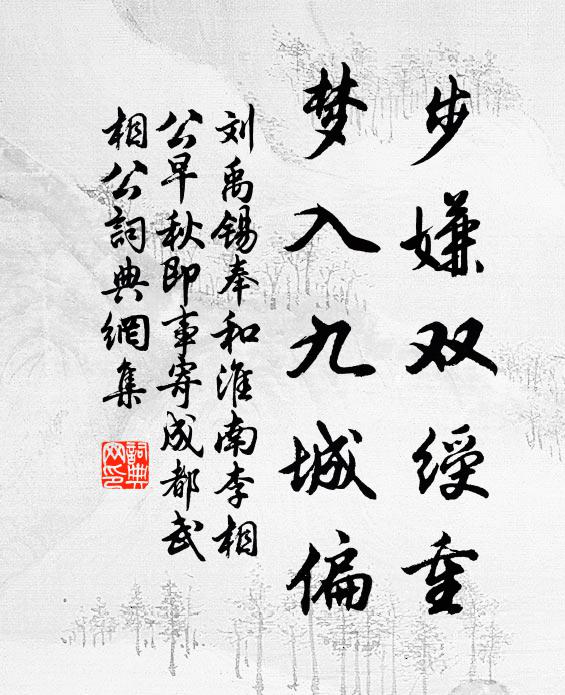 步嫌双绶重
梦入九城偏
刘禹锡奉和淮南李相
公早秋即事寄成都武
相公詞典網集
詞典
网印